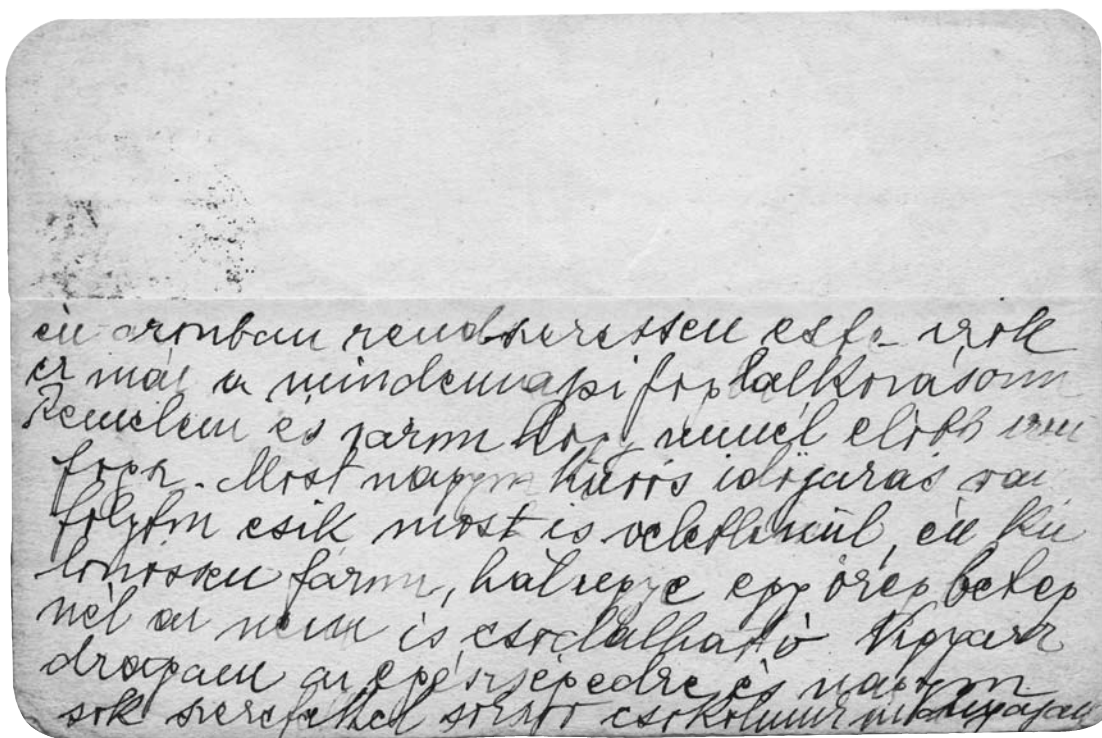 én azonban rendszeressen este irok
ez már a mindennapi foglalkozásom
Remelem és varom hogy minél elöbb irni
fogsz. Most nagyon  idöjarás van
folyton esik most is veletlenül, én kü
lönössen fázom, hát  egy öreg beteg
nél az nem is csodalható Vigyázz
dragam az egészségedre és nagyon
sok szeretettel  csokolunk